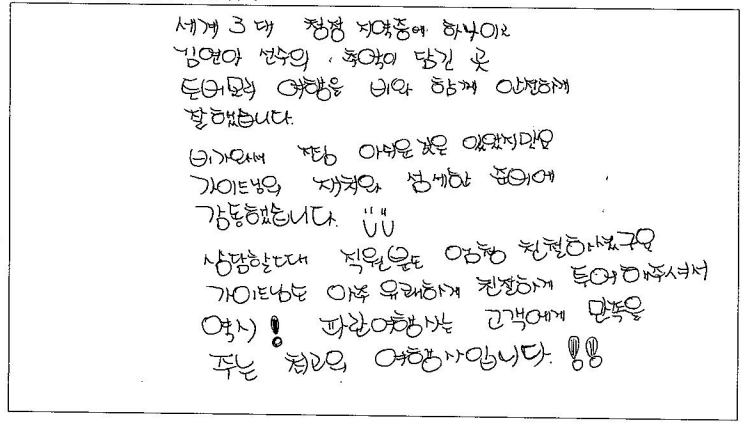 세계 3대 청정 지역중에 하나이고
김연아 선수의 추억이 담긴 곳
토버모리 여행을 비와 함께 안전하게
잘했습니다.
비가와서 쪼금 아쉬운 것은 있었지만요
가이드님의 재치와 섬세한 준비에
감동했습니다.
상담할때 직원분도 엄청 친절하셨구요
가이드님도 아주 유쾌하게 친절하게 투어해주셔서
역시! 파란여행사는 고객에게 만족을
주는 최고의 여행사입니다.!!